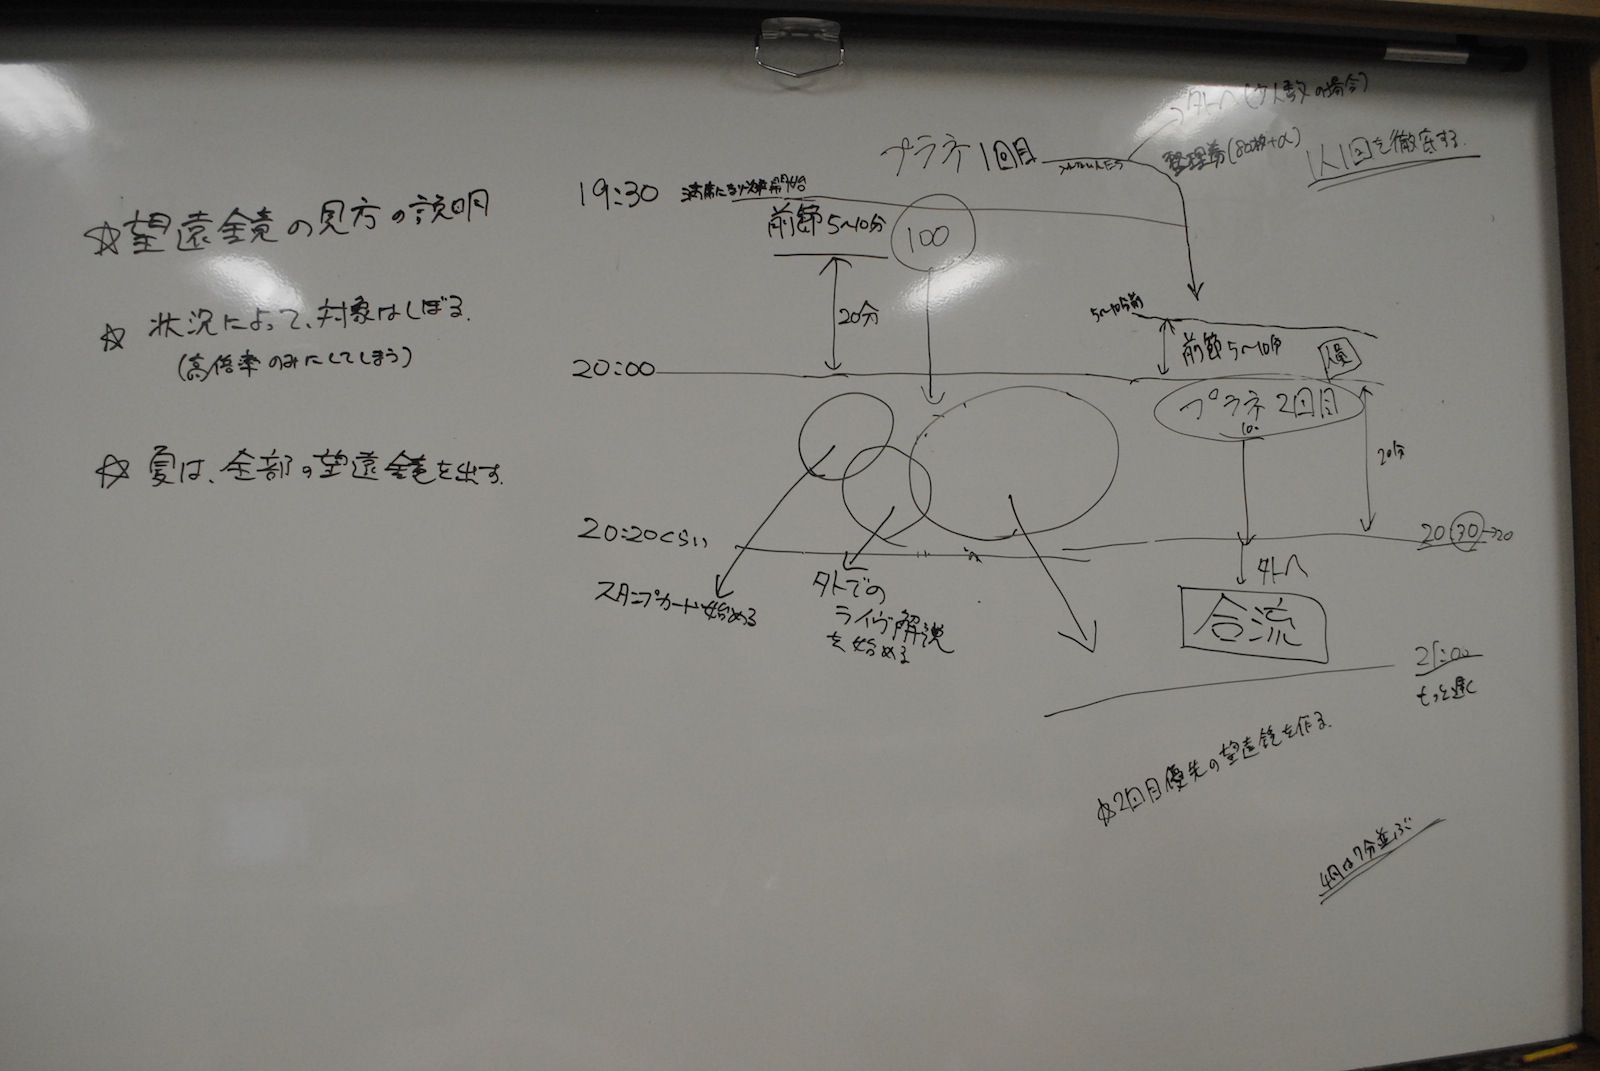 ☆望遠鏡の見方の説明
☆ 状況によって、対象はしぼる.
(高倍率のみにしてしまう)
☆ 夏は、全部の望遠鏡を出す.
プラネ 1回目
外へ(少人数の場合)
整理券(80枚+α)
1人1回を徹底する.
19:30
前節5〜10分
100
20分
5〜10分前
前節5〜10分
人員
20:00
プラネ 2回目
20分
20:20くらい
20
30
→20
スタンプカード始める
外での
ライヴ解説
を始める
外へ
合流
21:00
もっと遅く
☆2回目優先の望遠鏡を作る.
4月は7分並ぶ